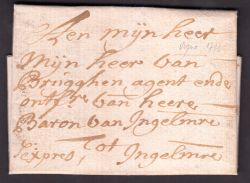 Aen mÿn heer
Mÿn heer van
Brugghen agent ende
ontfr. van heere
Baron van Ingelmre
tot Ingelmre
Expres,